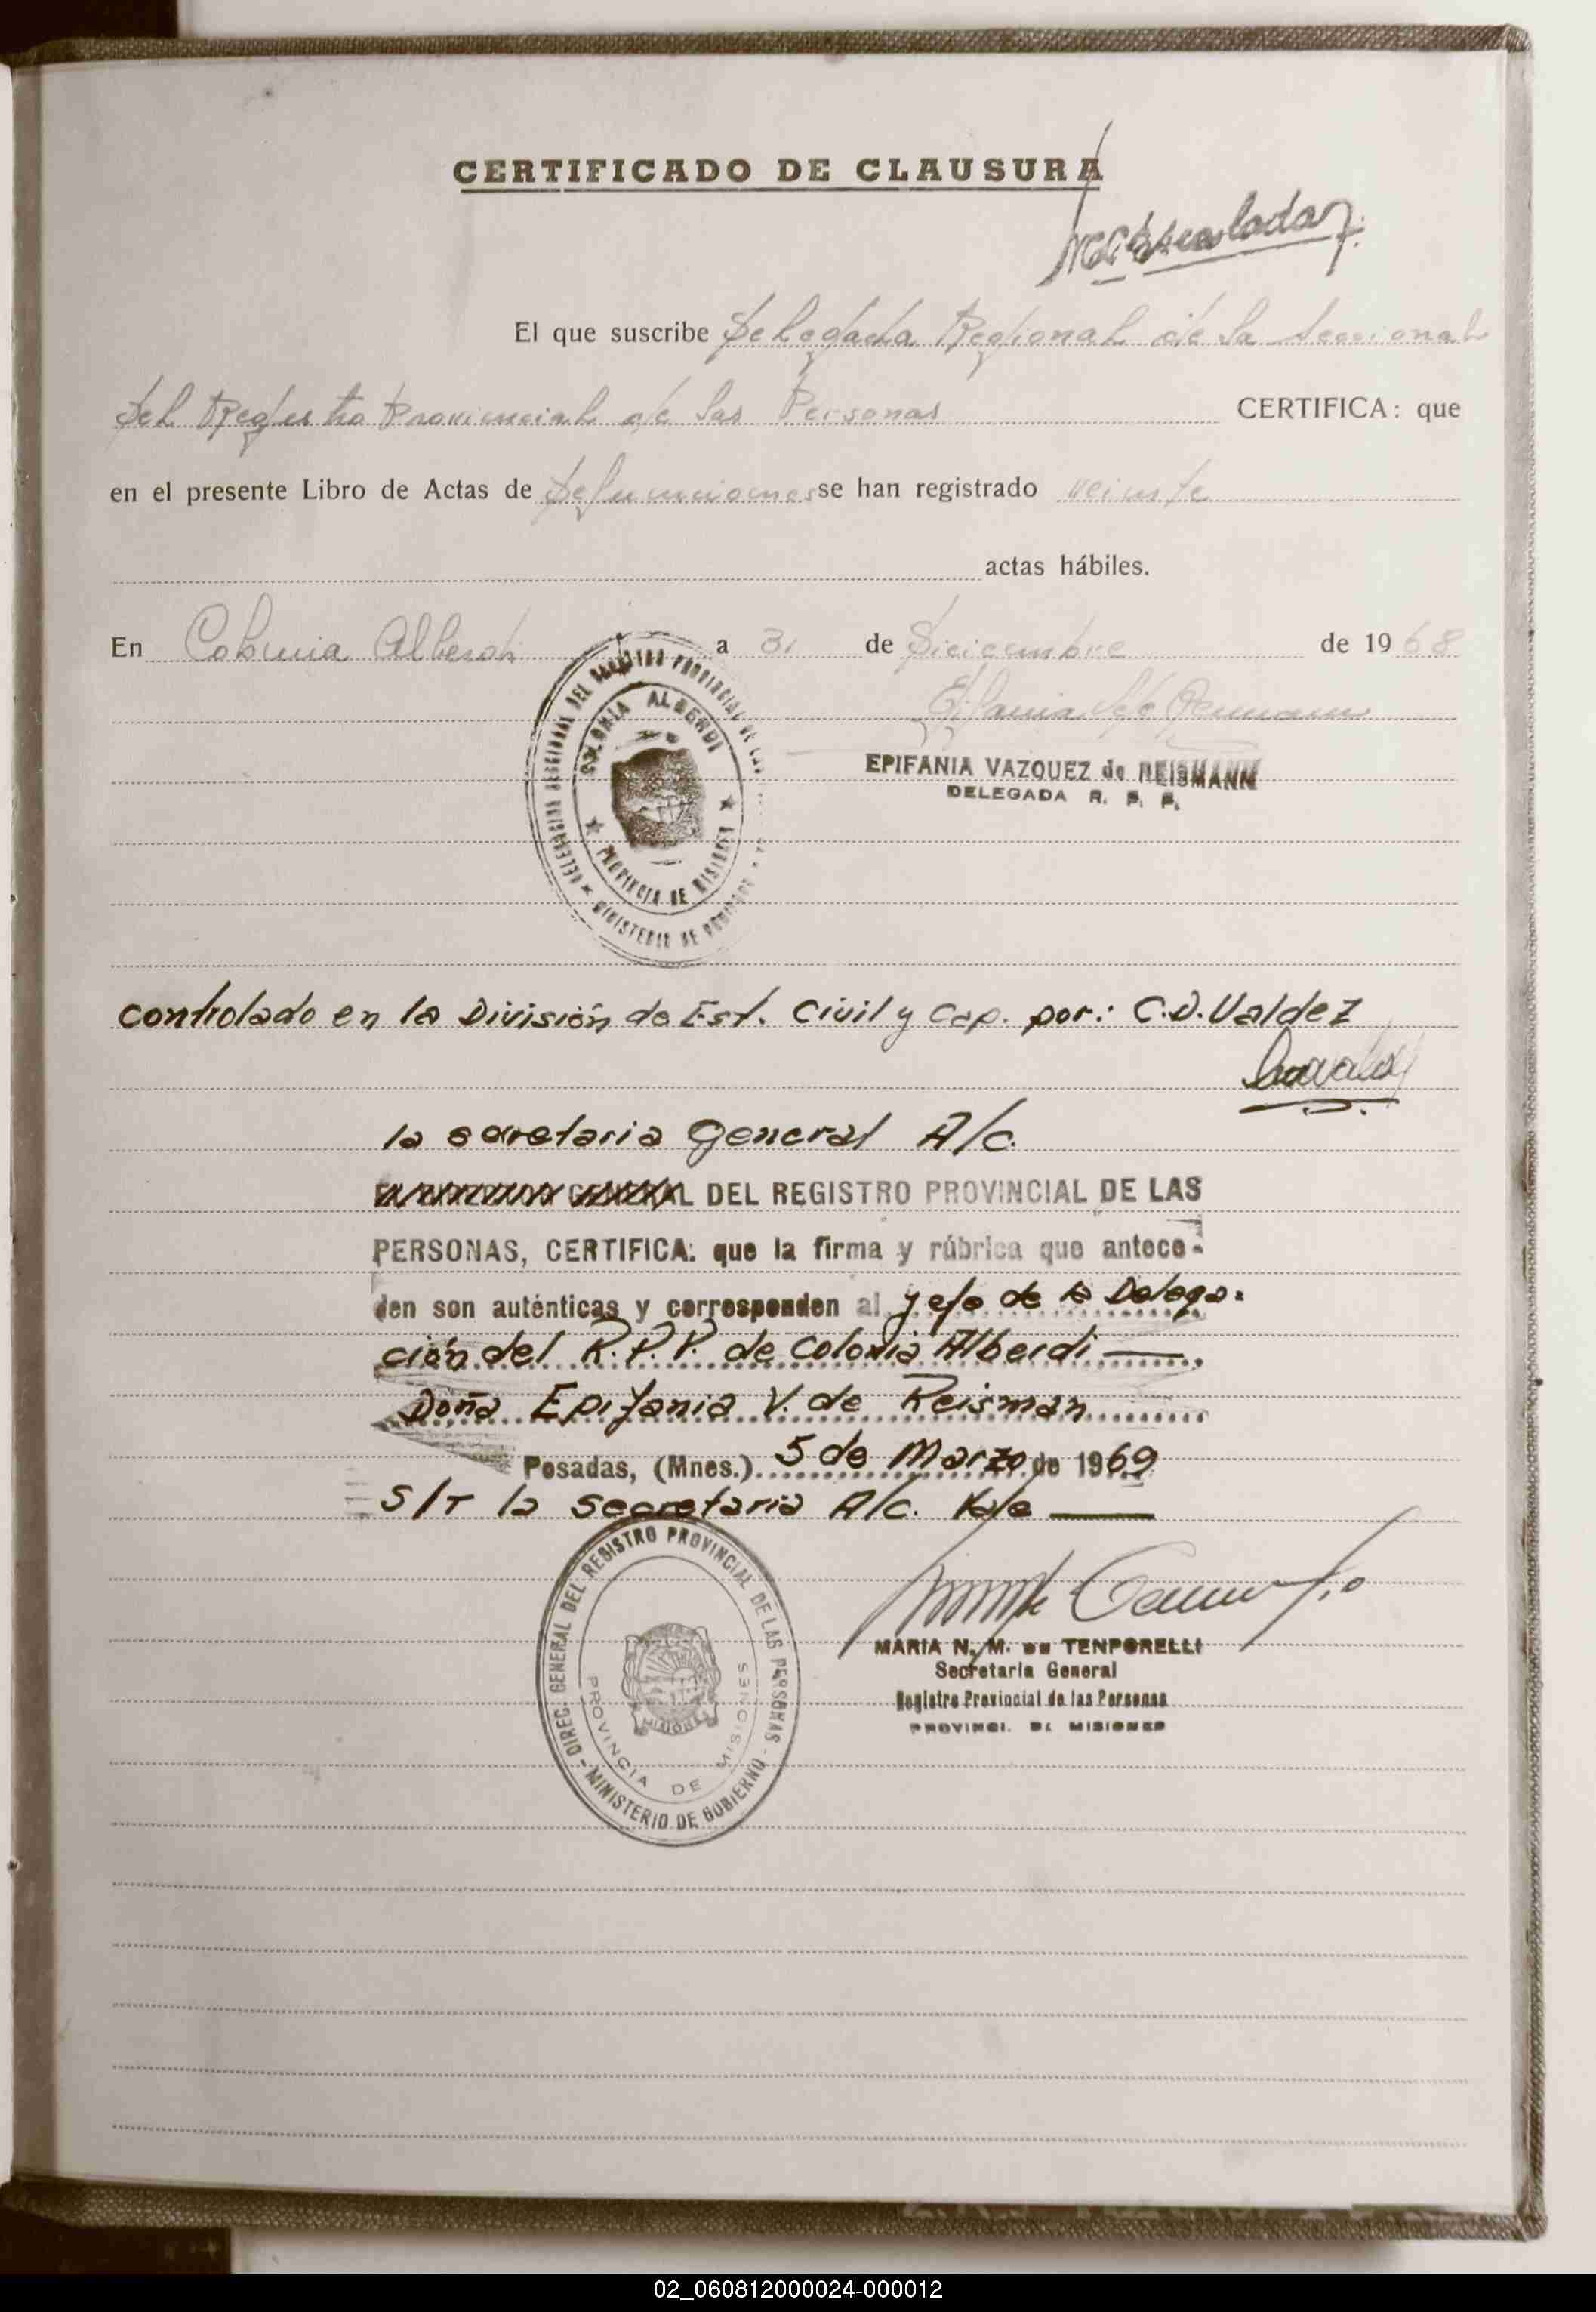 CERTIFICADO DE CLAUSURA
El que suscribe Delegada Regional de la Seccional
del Registro Provincial de las Personas CERTIFICA: que
en el presente Libro de Actas de Defunciones se han registrado veinte
actas hábiles.
En Colonia Alberdi a 31 de Diciembre de 1968
EPIFANIA VAZQUEZ de REISMANN
DELEGADA R. P. P.
COLONIA ALBERDI
PROVINCIA DE MISIONES
controlado en la División de Est. Civil y Cap. por: C.D. Valdez
la secretaria General A/c.
DEL REGISTRO PROVINCIAL DE LAS
PERSONAS, CERTIFICA: que la firma y rúbrica que antece-
den son auténticas y corresponden al jefe de la Delega-
ción del R.P.P. de Colonia Alberdi
Doña Epifania V. de Reisman
Posadas, (Mnes.) 5 de Marzo de 1969
S/T la secretaria A/c. Vale
DIREC. GENERAL DEL REGISTRO PROVINCIAL DE LAS PERSONAS - MINISTERIO DE GOBIERNO -
PROVINCIA DE MISIONES
MISIONES
MARIA N. M. DE TENPORELLI
Secretaria General
Registro Provincial de las Personas
PROVINCI. DE MISIONES
02_060812000024-000012